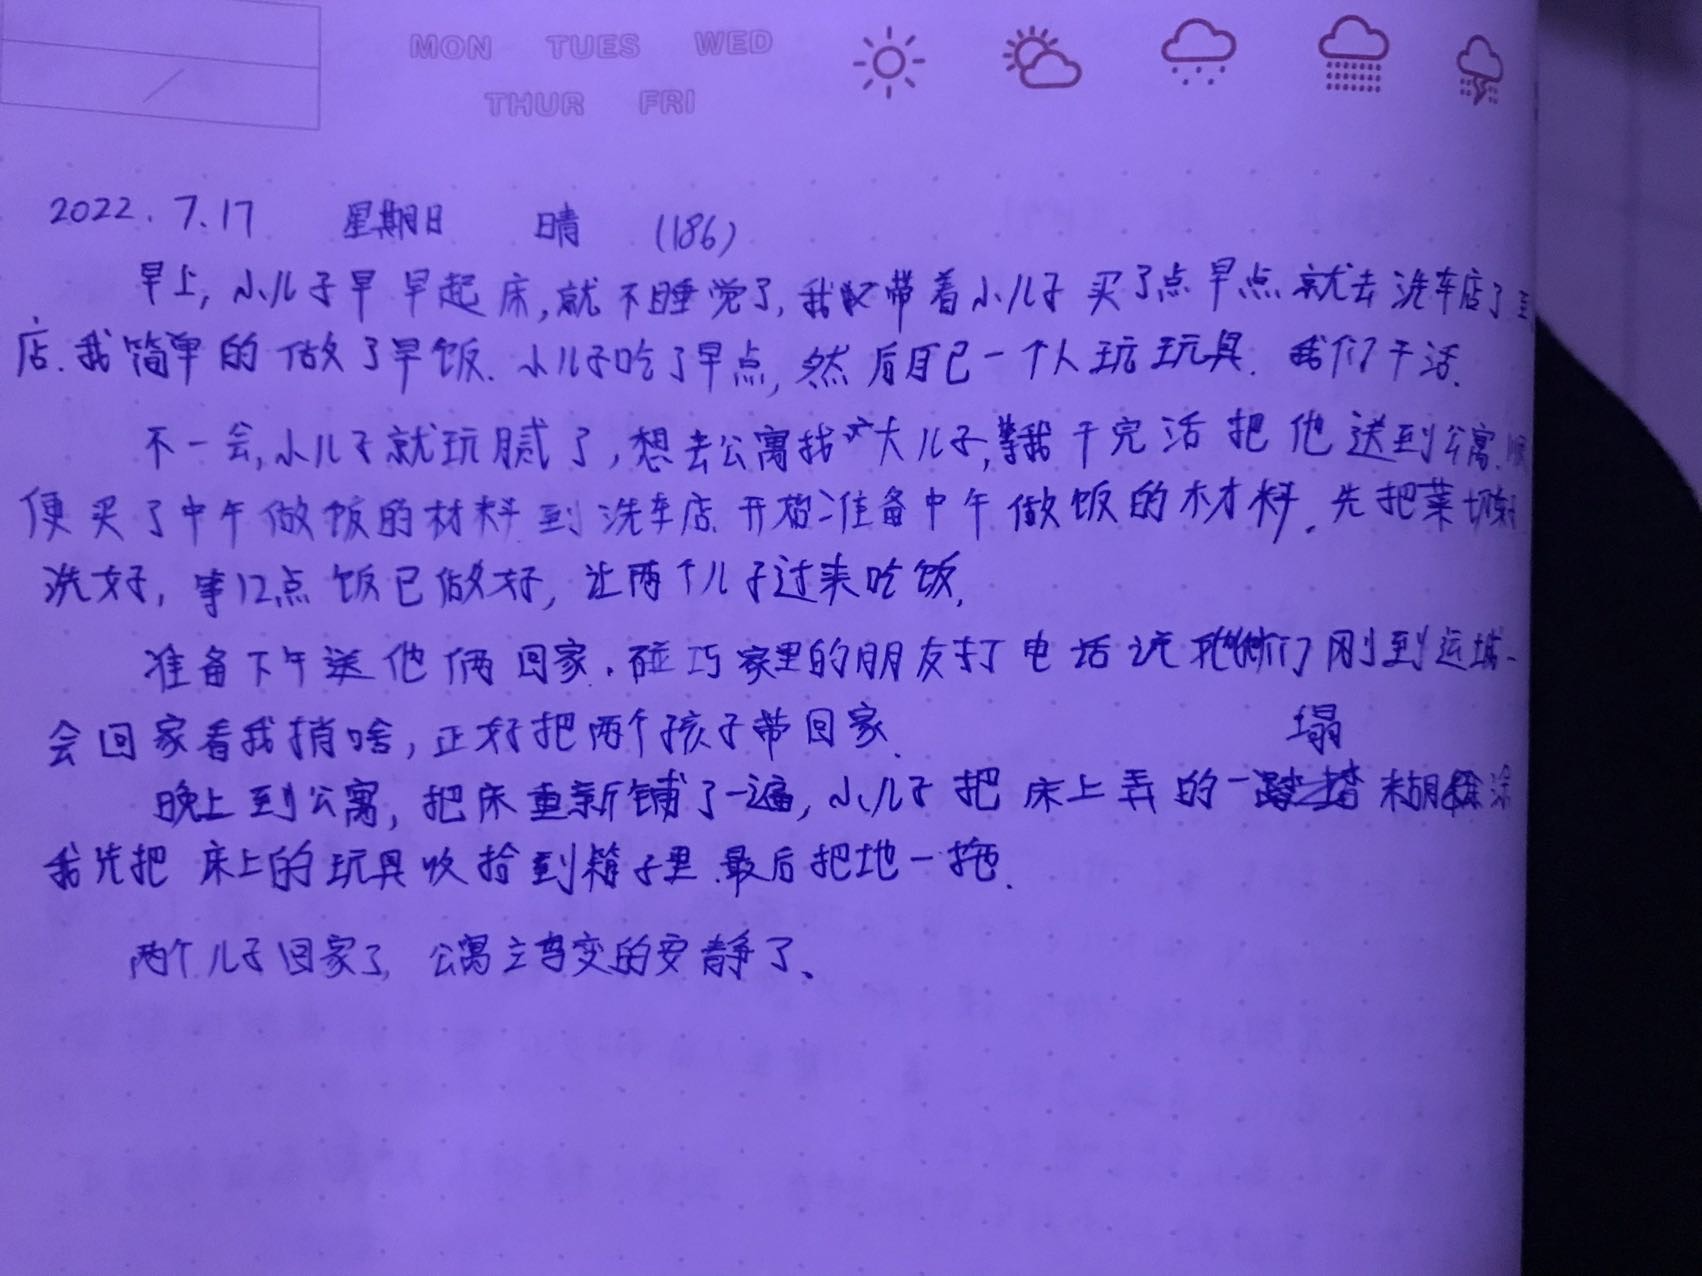 MON TUES WED
THUR FRI
2022.7.17 星期日 晴 (186)
早上,小儿子早早起床,就不睡觉了,我带着小儿子买了点早点就去洗车店了
店.我简单的做了早饭.小儿子吃了早点,然后自己一个人玩玩具.我们干活.
不一会,小儿子就玩腻了,想去公寓找大儿子,等我干完活把他送到公寓.顺
便买了中午做饭的材料到洗车店.开始准备中午做饭的材料.先把菜切好
洗好,12点饭已做好,让两个儿子过来吃饭.
准备下午送他俩回家.碰巧家里的朋友打电话说他们刚到运城一
会回家看我捎啥,正好把两个孩子带回家.
塌
晚上到公寓,把床重新铺了一遍,小儿子把床上弄的一糊涂
我先把床上的玩具收拾到箱子里.最后把地一拖.
两个儿子回家了,公寓立马变的安静了、